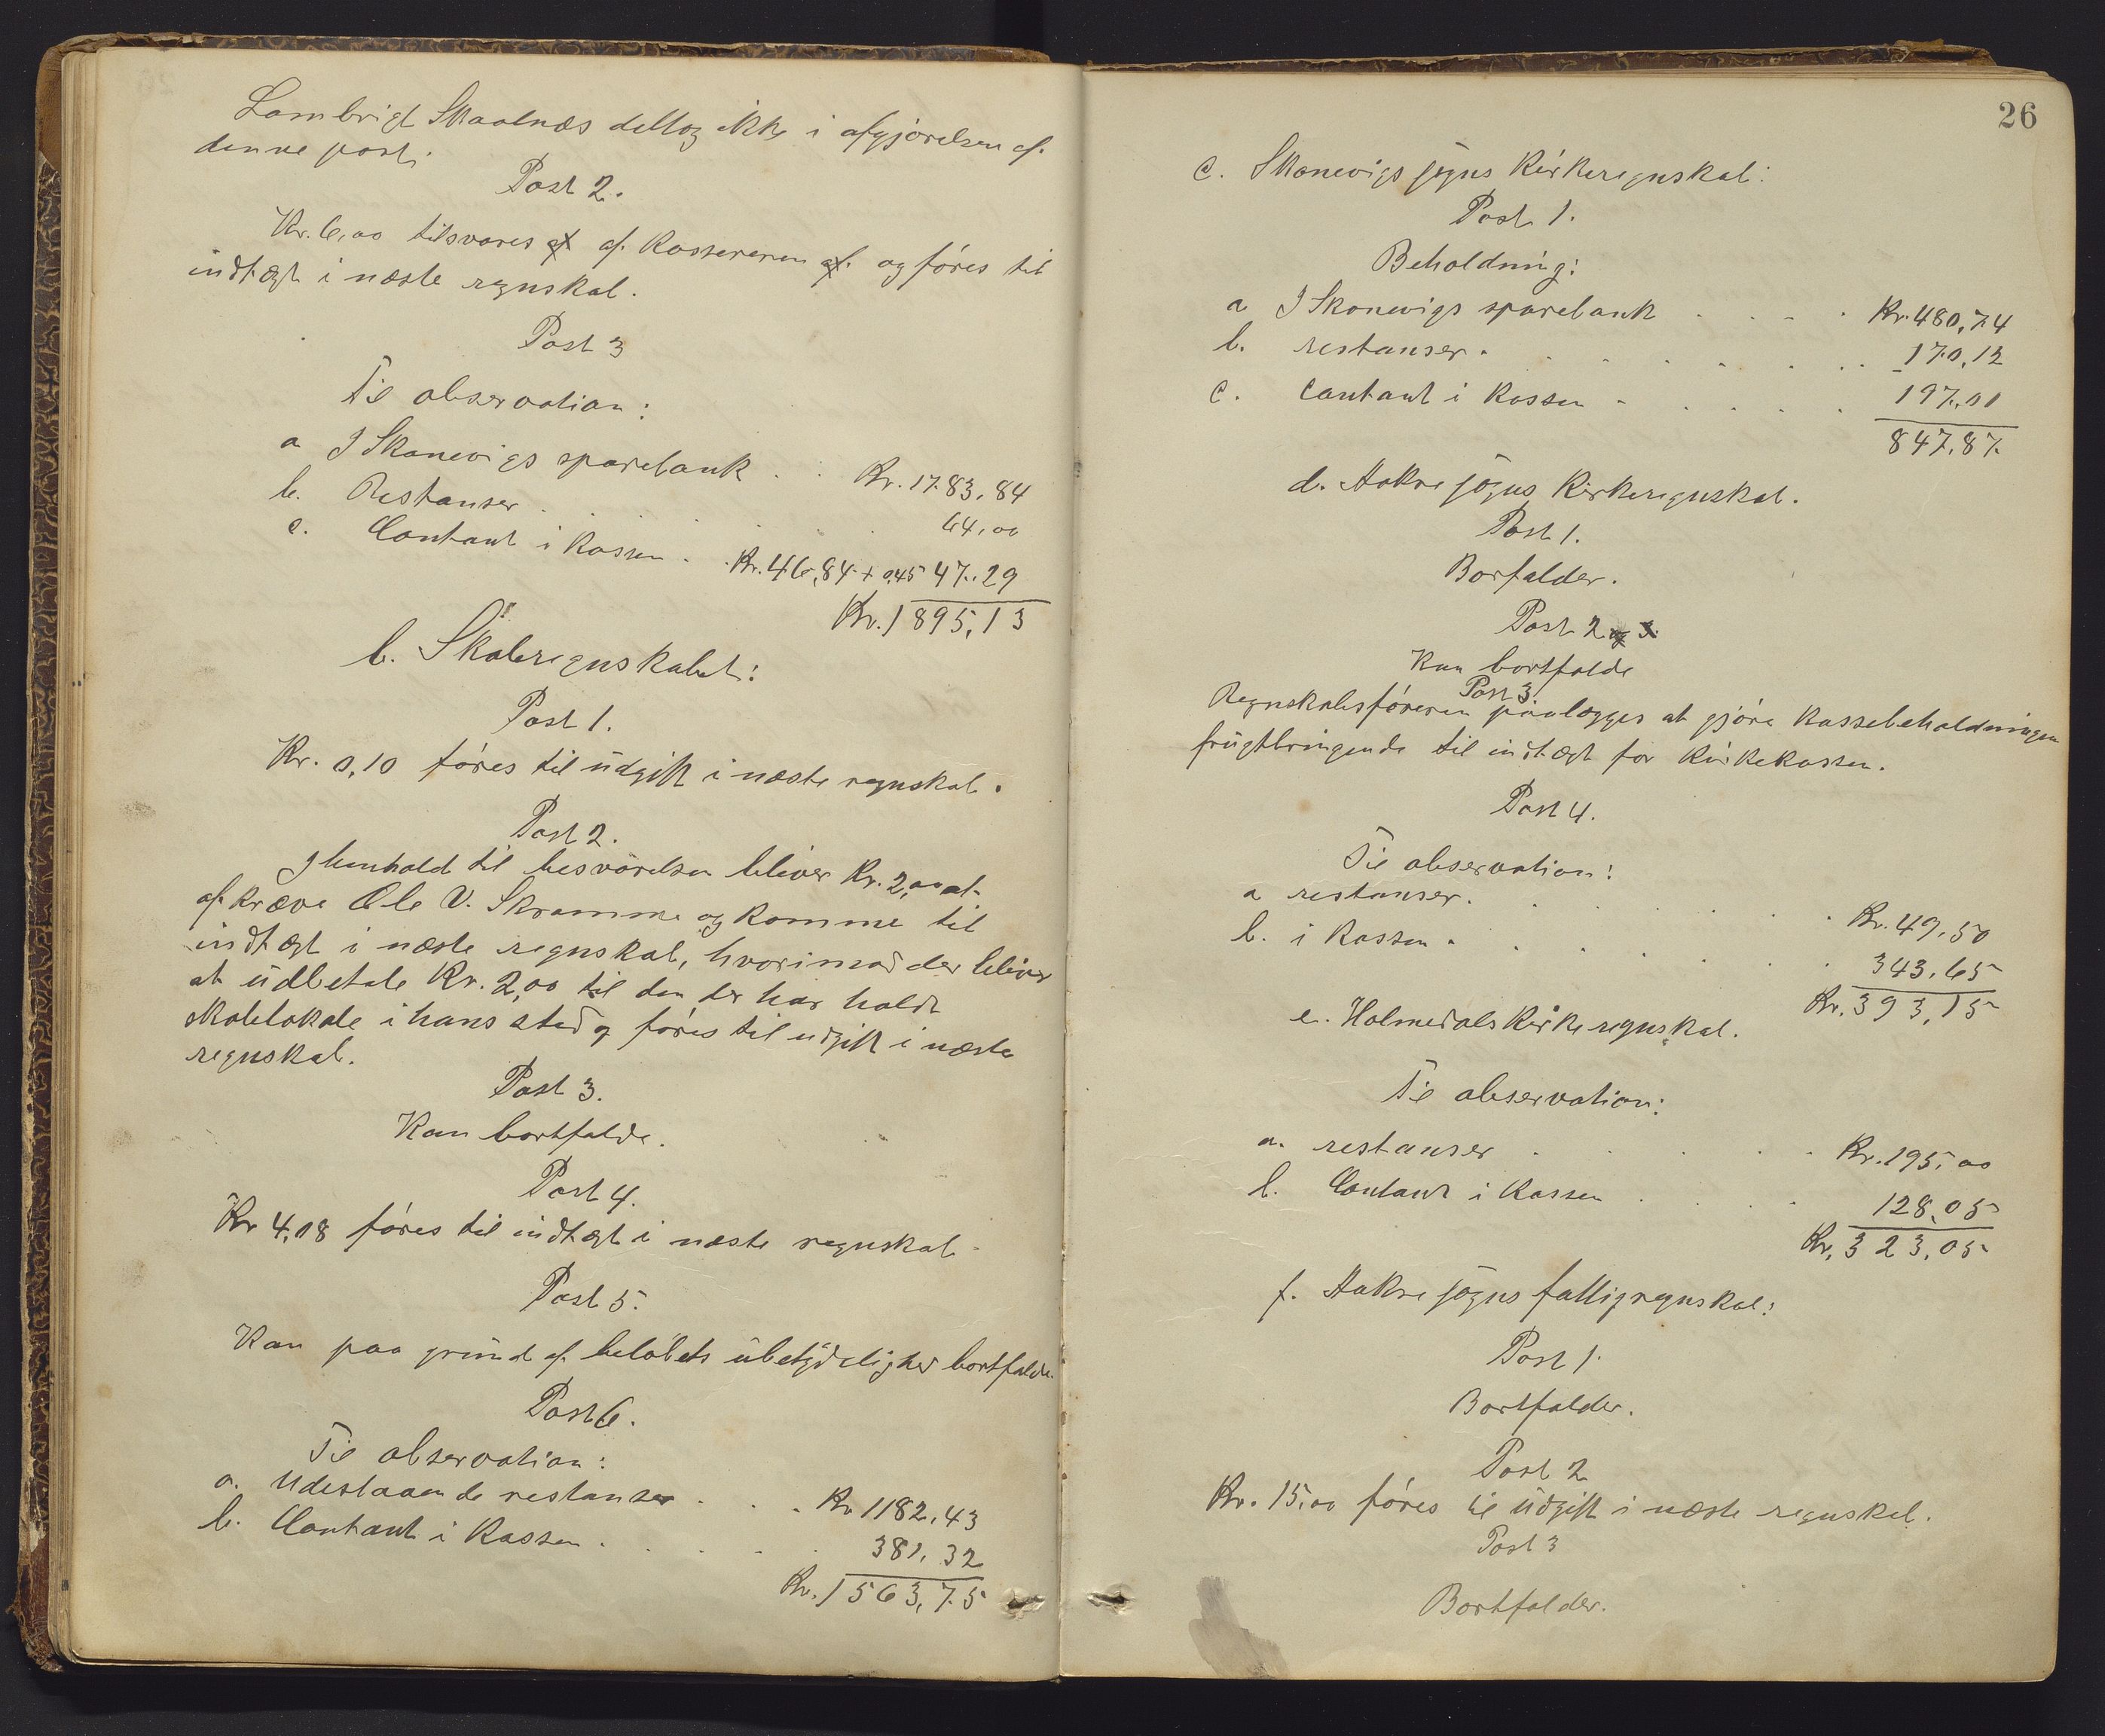 Lambrigt Skaalnæs deltog ikke i afgjørelsen af
denne post.
Post 2.
Kr. 6,00 tilsvares af af Kassereren af og føres til
indtægt i næste regnskab.
Post 3
Til observation:
a I Skonevigs sparebank . . Kr. 1783,84
b. Restanser . . . . . 64,00
c. Contant i Kassen . . Kr. 46,84 + 0,45 47,29
Kr. 1895,13
b. Skoleregnskabet:
Post 1.
Kr. 0,10 føres til udgift i næste regnskab.
Post 2.
I henhold til besvarelsen bliver Kr. 2,00 at
afkræve Ole V. Skromme og komme til
indtægt i næste regnskab, hvorimod der bliver
at udbetale Kr. 2,00 til den der har holdt
skolelokale i hans sted og føres til udgift i næste
regnskab.
Post 3.
Kan bortfalde.
Post 4.
Kr 4,08 føres til indtægt i næste regnskab.
Post 5.
Kan paa grund af beløbets ubetydelighed bortfalde.
Post 6.
Til observation:
a. Udestaaende restanser . . . Kr 1182,43
b. Contant i Kassen . . . . 381,32
Kr. 1563,75
26
c. Skonevigs sogns Kirkeregnskab:
Post 1.
Beholdning:
a I Skonevigs sparebank . . . . Kr. 480,74
b. restanser . . . . . . . 170,12
c. Contant i Kassen . . . . . 197,01
847,87
d. Aakre sogns Kirkeregnskab.
Post 1.
Borfalder.
Post 2 og 3.
Kan bortfalde
Post 3.
Regnskabsføreren paalægges at gjøre Kassebeholdningen
frugtbringende til indtægt for Kirkekassen.
Post 4.
Til observation:
a restanser . . . . . . Kr. 49,50
b. i Kassen . . . . . . 343,65
Kr. 393,15
e. Holmedals Kirkeregnskab.
Til observation:
a. restanser . . . . . Kr. 195,00
b. Contant i Kassen . . . . 128,05
Kr. 323,05
f. Aakre sogns fattigregnskab:
Post 1.
Bortfalder.
Post 2
Kr. 15,00 føres til udgift i næste regnskab.
Post 3
Bortfalder.